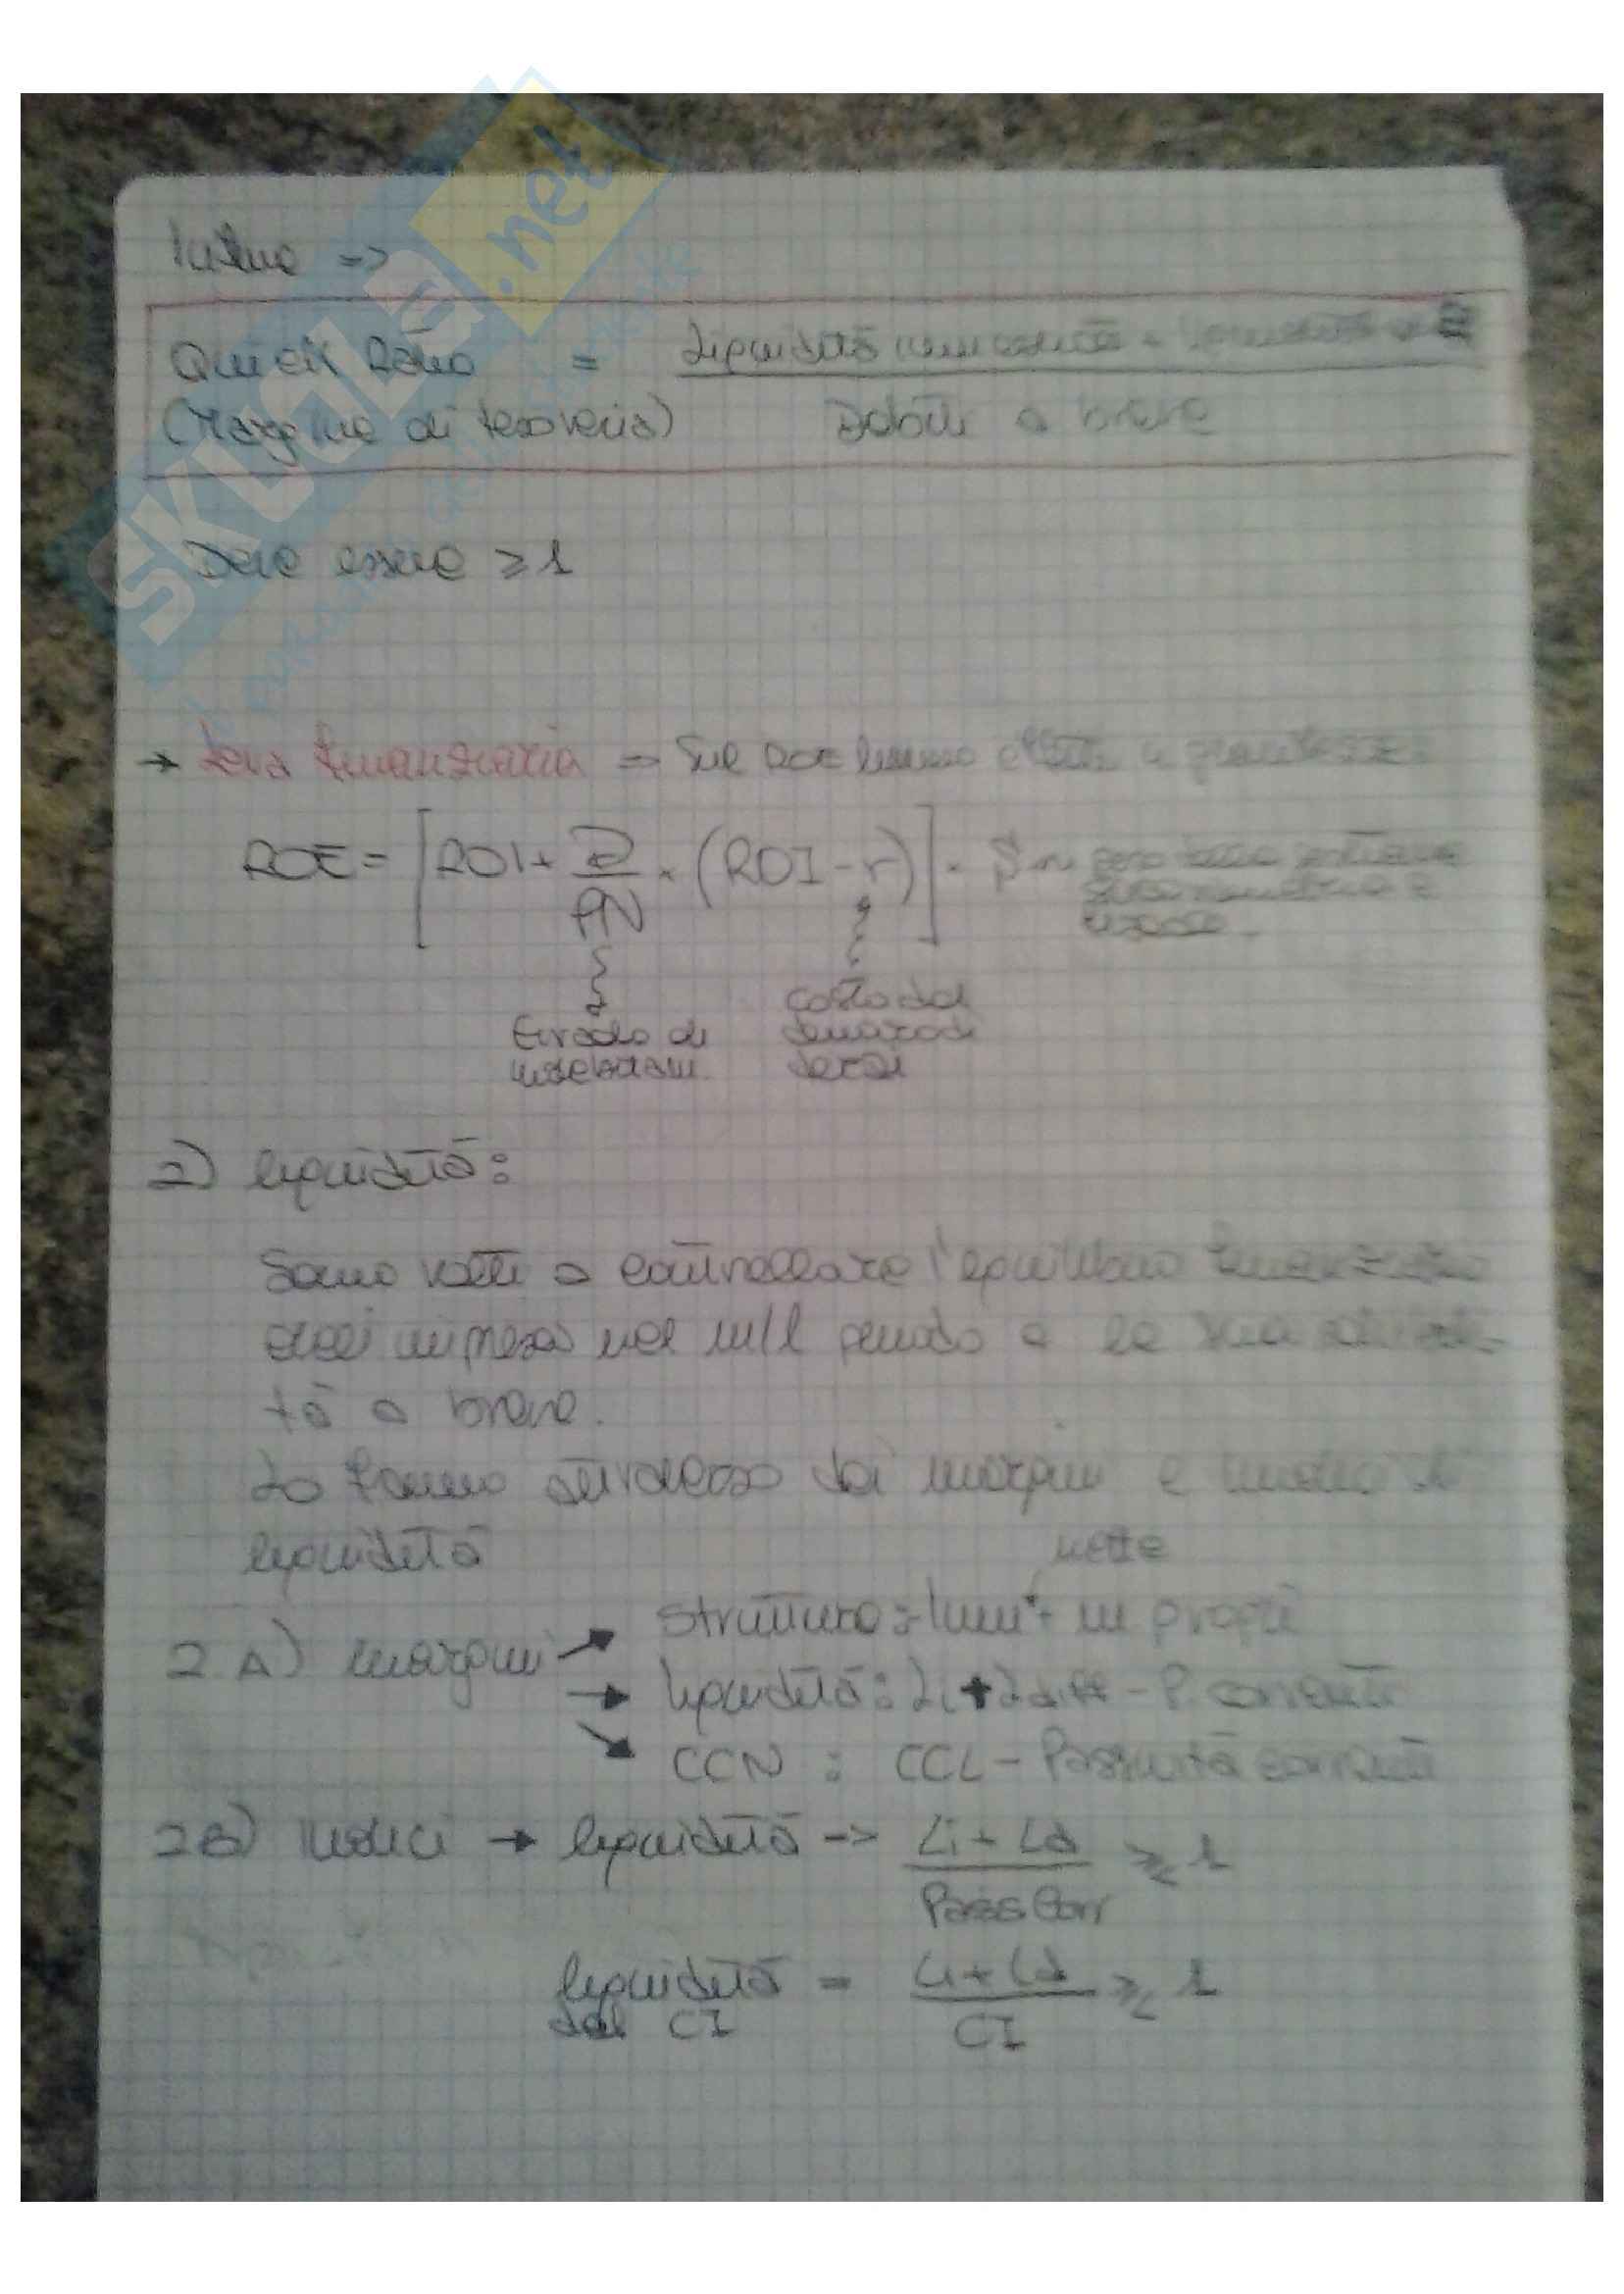 Infine =>
Quick Ratio = Liquidità immediate + liquidità
(Margine di tesoreria) Debiti a breve
Deve essere ≥ 1
→ Leva finanziaria => Sul ROE hanno effetti
ROE = [ROI + D/PN × (ROI - r)] · S
Grado di
indebitam.
costo del
denaro di
terzi
2) liquidità:
Sono volti a controllare l'equilibrio finanziario
dell'impresa nel m/l periodo e la sua
tà a breve.
Lo fanno attraverso dei margini e indici di
liquidità
nette
2.A) margini → Struttura: - Imm + m propri
→ liquidità: Li + Ldiff - P. correnti
→ CCN : CCL - Passività correnti
2B) Indici → liquidità -> Li + Ld / Pass Corr ≥ 1
liquidità del CI = Li + Ld / CI ≥ 1
SKUOLA.net